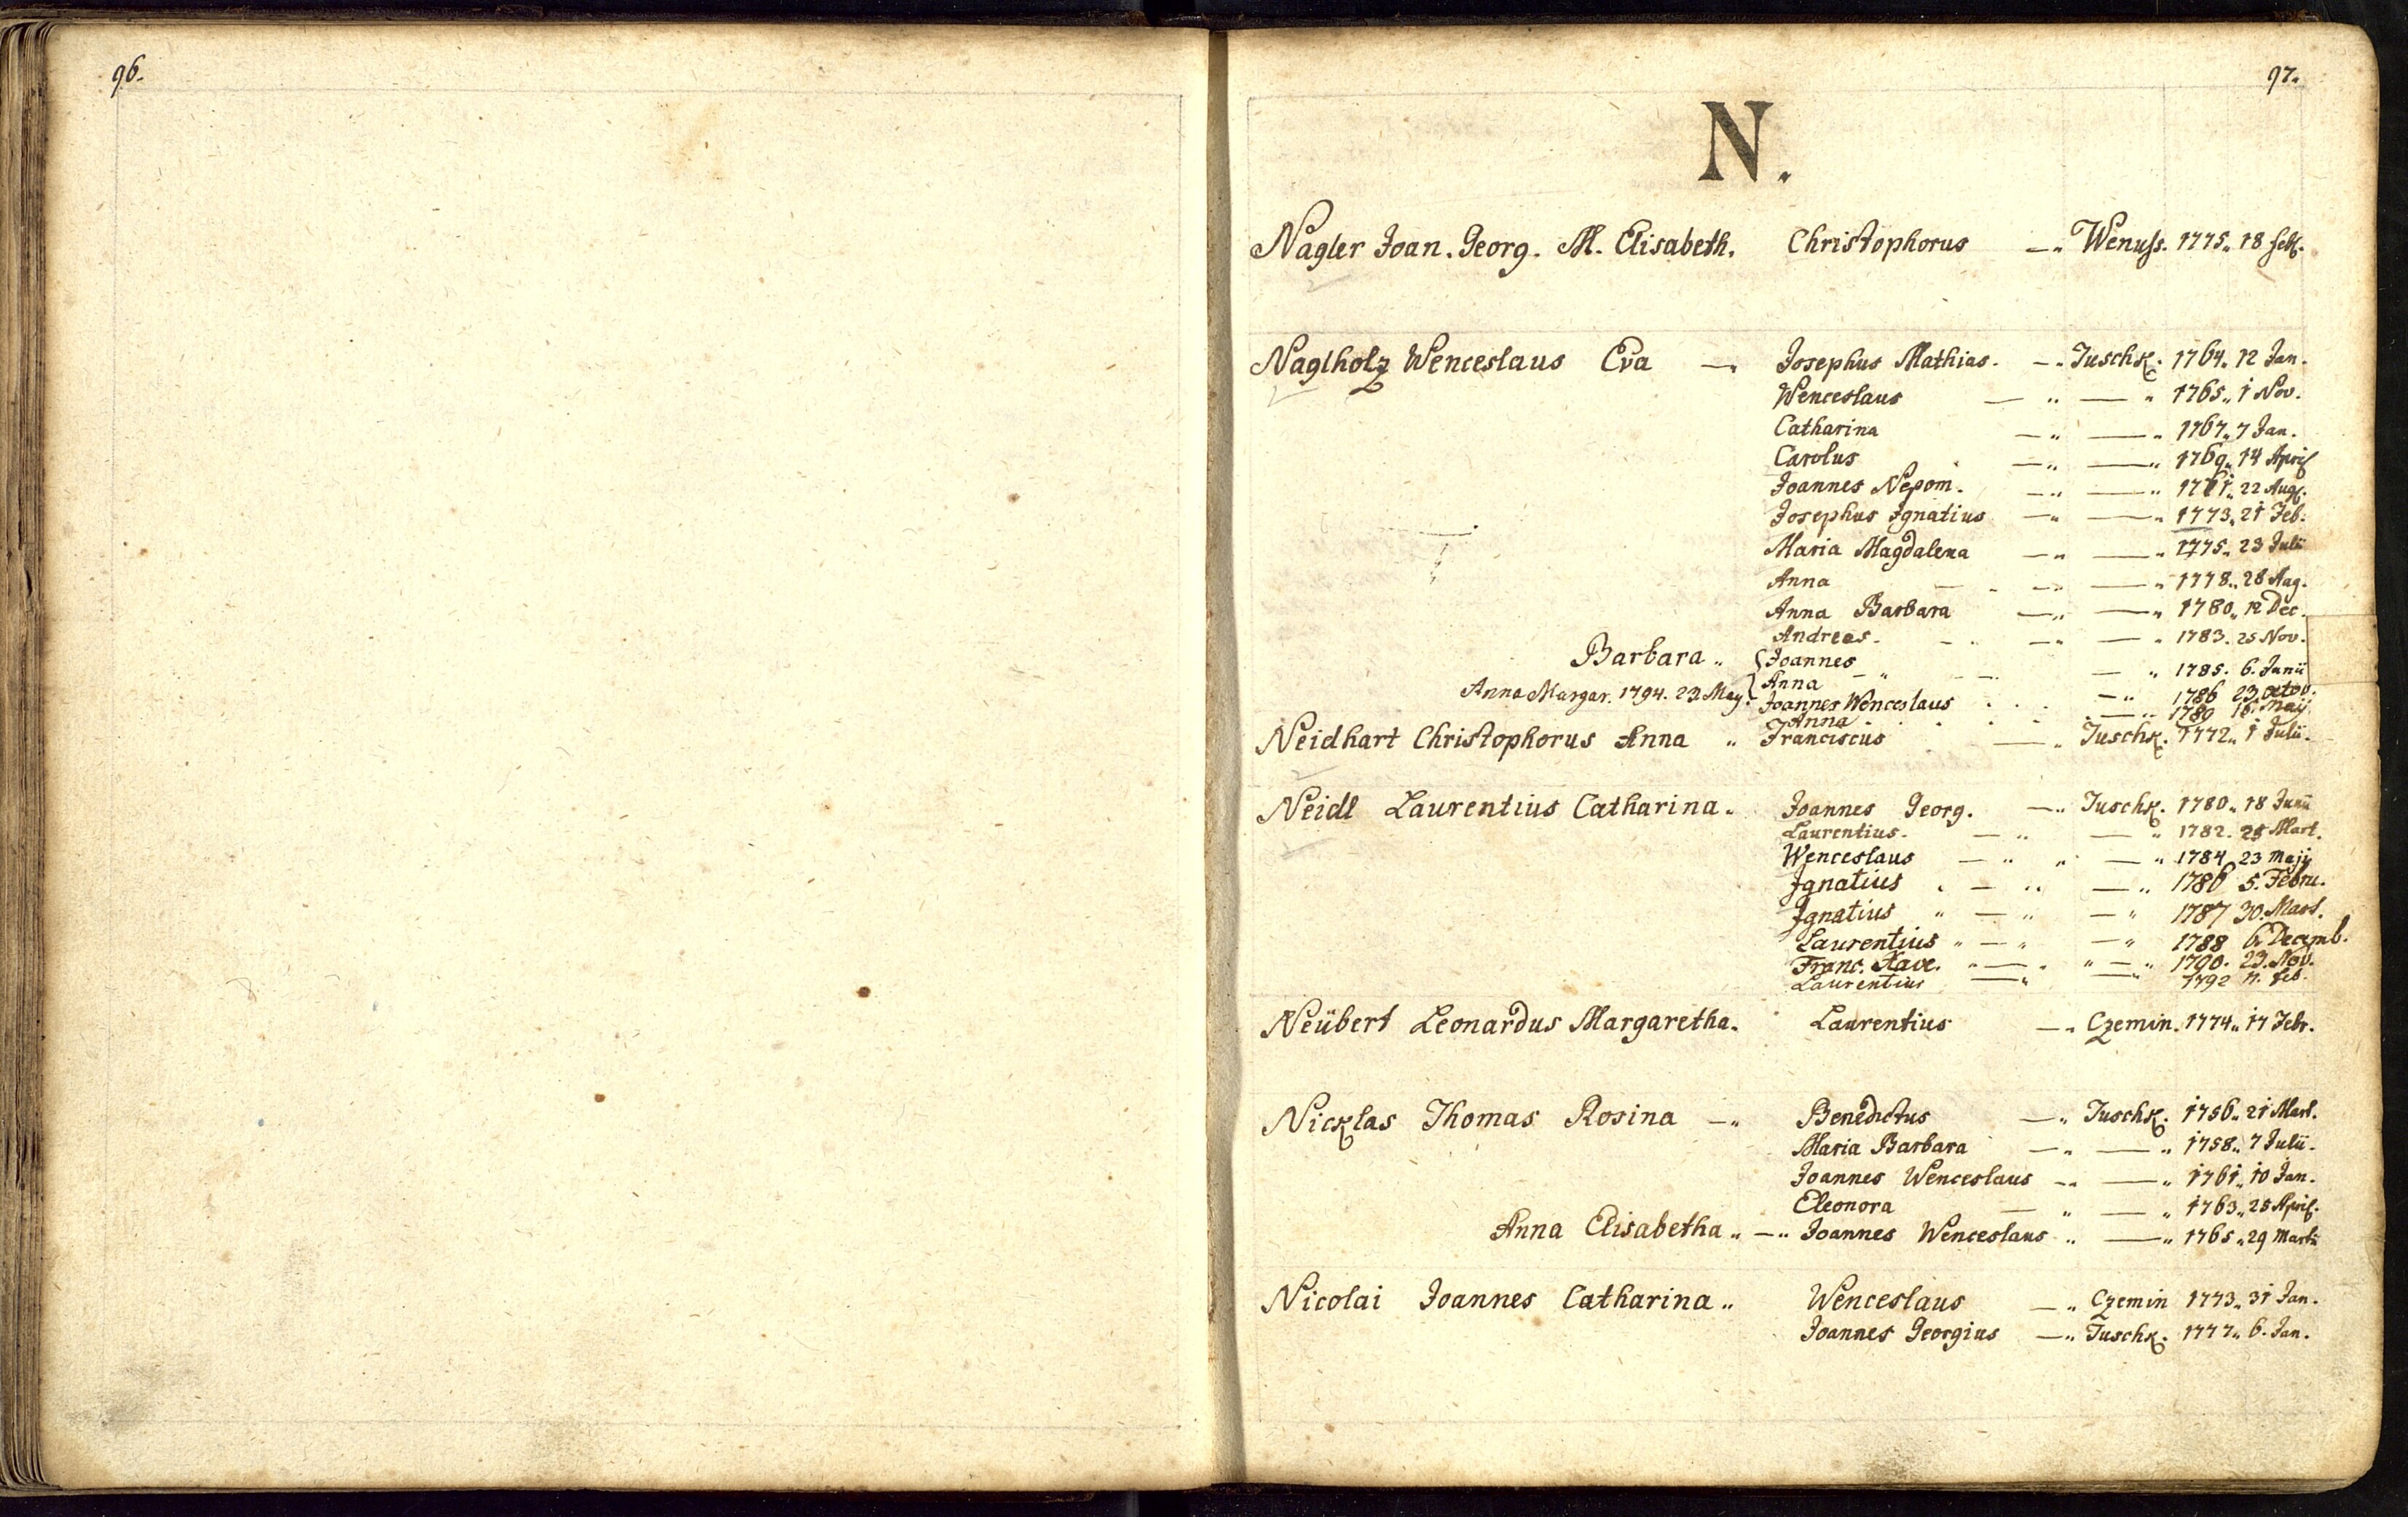 96.
97.
N.
Nagler Joan. Georg. M. Elisabeth. Christophorus —„ Wenuss. 1775„ 18 feb.
Naglholz Wenceslaus Eva —„ Josephus Mathias. —„ Tuschk. 1764„ 12 Jan.
Wenceslaus — „ — „ 1765„ 1 Nov.
Catharina —„ —„ 1767„ 7 Jan.
Carolus —„ —„ 1769„ 14 April
Joannes Nepom. —„ —„ 1771„ 22 Aug.
Josephus Ignatius —„ —„ 1773„ 21 Feb.
Maria Magdalena —„ —„ 1775„ 23 Julii
Anna — „ —„ —„ 1778„ 28 Aug.
Anna Barbara —„ —„ 1780„ 12 Dec.
Andreas. — „ —„ — „ 1783. 25 Nov.
Barbara „ {Joannes — „ 1785. 6. Junii
Anna Margar. 1794. 23. May. {Anna — „ — „ —„ 1786 23. octob.
Joannes Wenceslaus . . . —„ 1789 16. Maij
Anna
Neidhart Christophorus Anna „ Franciscus —„ Tuschk. 1772„ 1 Julii.
Neidl Laurentius Catharina„ Joannes Georg. —„ Tuschk. 1780„ 18 Junii
Laurentius. — „ — „ 1782. 25 Mart.
Wenceslaus — „ „ — „ 1784 23 Majy
Ignatius . — „ —„ 1786 5. Febru.
Ignatius „ — „ —„ 1787 30. Mart.
Laurentius „ — „ —„ 1788 6. Decemb.
Franc. Xave. „ — „ „ — „ 1790. 23. Nov.
Laurentius —„ —„ 1792 11. feb.
Neübert Leonardus Margaretha. Laurentius —„ Czemin. 1774„ 17 Febr.
Nicklas Thomas Rosina —„ Benedictus —„ Tuschk. 1756„ 21 Mart.
Maria Barbara —„ —„ 1758„ 7 Julii.
Joannes Wenceslaus —„ —„ 1761„ 10 Jan.
Eleonora — „ — „ 1763„ 25 April.
Anna Elisabetha „ —„ Joannes Wenceslaus „ —„ 1765„ 29 Martii
Nicolai Joannes Catharina „ Wenceslaus —„ Czemin 1773„ 31 Jan.
Joannes Georgius —„ Tuschk. 1777„ 6. Jan.